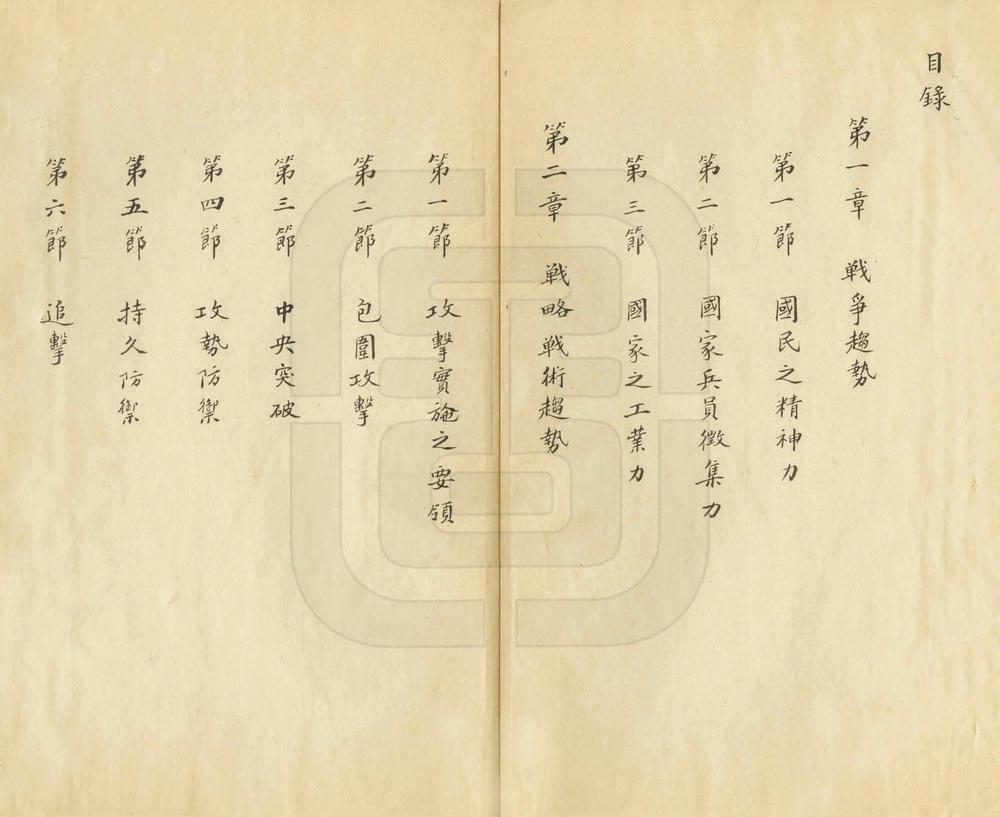 目錄
第一章 戦爭趨勢
第一節 國民之精神力
第二節 國家兵員徵集力
第三節 國家之工業力
第二章 戦略戦術趨勢
第一節 攻擊實施之要領
第二節 包圍攻擊
第三節 中央突破
第四節 攻勢防禦
第五節 持久防禦
第六節 追擊